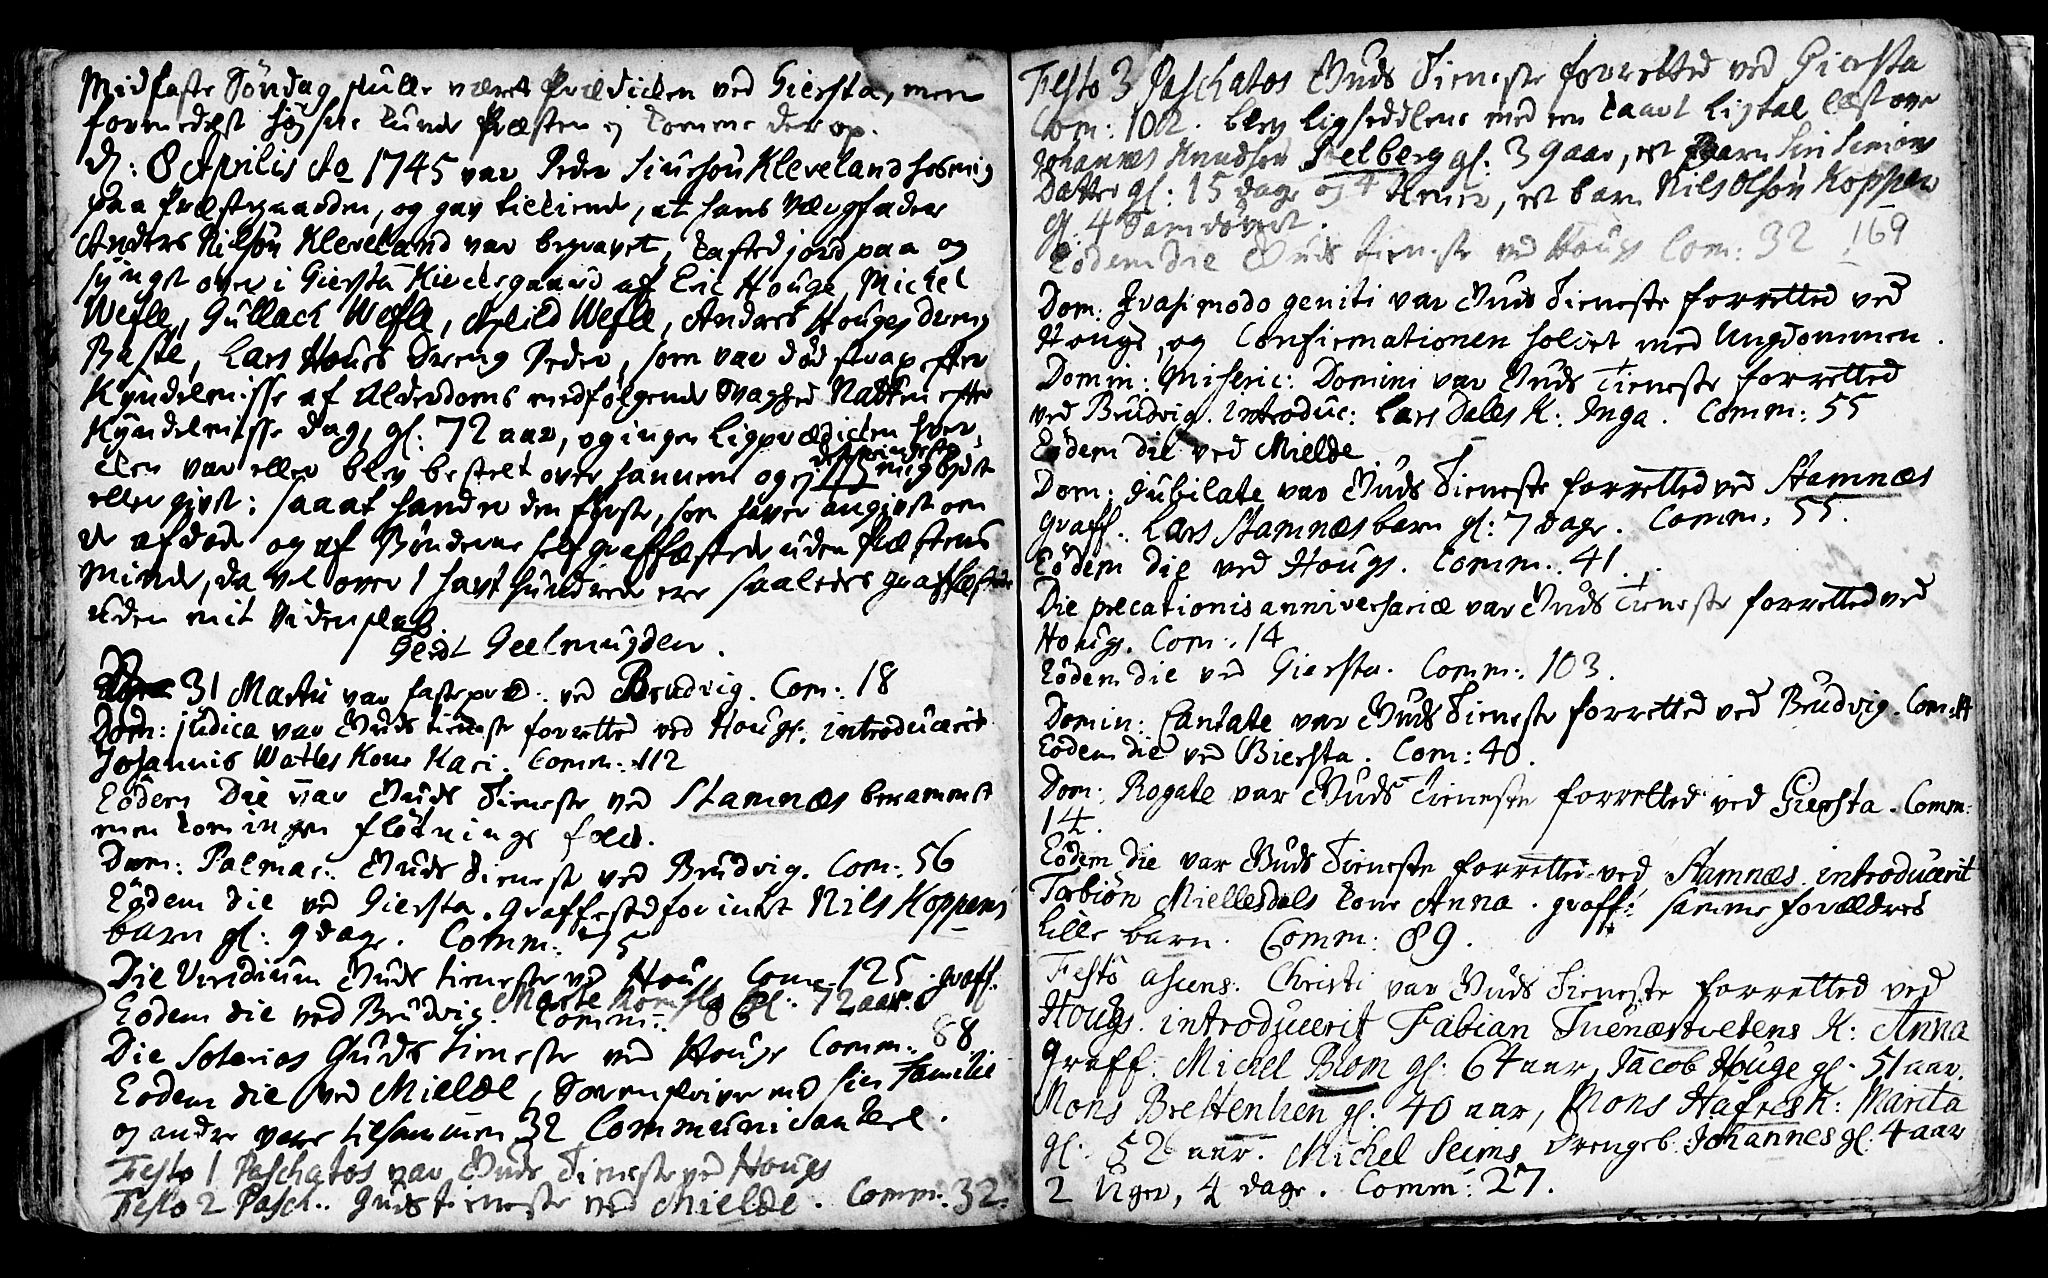 Midfaste Söndag skulle været Prædicken ved Giersta, men
formedelst kunde Præsten ej komme der op.
d: 8 Aprilis Ao 1745 var Peder Siursön Kleveland hos mig
paa Præstegaarden, og gav tilkiende, at hans
Anders Nilsön Kleveland var begravet, kasted jord paa og
siunget over i Giersta Kirckegaard af Eric Houge, Michel
Wefle, Gullach Wefle, Wefle, Anders Houges dreng
Baste, Lars Houes dreng Peder, som var död strax efter
Kyndelmisse af Alderdoms medfölgende Svaghed Natten efter
Kyndelmisse dag, gl: 72 aar, og ingen Ligprædicken hver-
cken var eller blev bestelt over hannem og ej mig budt
eller givet: saa at hand er den förste, som haver angivet om
de afdöde og af Bönderne self graffæstede uden Præstens
minde, da vel over 1 havt hundrede ere saaledes graffæstede
uden mit Videnskab.
Geert Geelmuyden.
31 Martii var fastepræd: ved Brudvig. Com: 18
Dom: judica var Guds tieneste forretted ved Houge. introducerit
Johannis Watles Kone Kari. Comm: 112
Eödem Die var Guds Tieneste ved Stamnæs berammet
men kom ingen flötnings folck.
Dom: Palmar: Guds Tieneste ved Brudvig. Com: 56
Eödem die ved Giersta. Graffested forinket Nils Koppens
barn gl: 9 dage. Comm: 75
Die Viridium Guds tieneste ved Houge Com: 125. graff:
Marte gl: 72 aar.
Eödem die ved Brudvig. Comm: 86
Die Soterias Guds tieneste ved Houge Comm: 88
Eodem die ved Mielde, Sorenskriver med sin Familie
og andre vare tilsammen 32 Communicantere.
Festo 1 Paschatos var Guds Tieneste ved Houge
Festo 2 Pasch: Guds tieneste ved Mielde. Comm: 32.
Festo 3 Paschatos Guds Tieneste forretted ved Giersta
Com: 102. blev ligseddlene med en kaart ligtal læst over
Johannes Knudsön Selberg gl: 39 aar, et barn Siri Simons
Datter gl: 15 dage og 4 Uger, et barn Nils Olsön Koppen
gl. 4
Eodem die Guds tieneste ved Houge Com: 32 169
Dom: Qvasimodo geniti var Guds Tieneste forretted ved
Houge, og Confirmationen holdet med Ungdommen.
Domin: Miseric: Domini var Guds Tieneste forretted
ved Brudvig. introduc: Lars Dalles K: Inga. Comm: 55
Eödem die ved Mielde
Dom: jubilate var Guds Tieneste forretted ved Stamnæs
graff: Lars Stamnæs barn gl: 7 dage. Comm: 55.
Eödem die ved Houge. Comm: 41.
Die precationis anniversariæ var Guds Tieneste forretted ved
Houge. Com: 14
Eödem die ved Giersta. Comm: 103.
Domin: Cantate var Guds Tieneste forretted ved Brudvig. Com:
Eodem die ved Giersta. Com: 40.
Dom: Rogate var Guds Tieneste forretted ved Giersta. Comm:
14.
Eödem die var Guds Tieneste forretted ved Stamnæs introducerit
Torbiön Miellesdals kone Anna. graff: samme forældres
lille barn. Comm: 89.
Festo ascens: Christi var Guds Tieneste forretted ved
Houge. introducerit Fabian Tuenæstvetens K: Anna
Graff: Michel Blom gl: 64 aar, Jacob Houge gl: 51 aar.
Mons Brettenken gl: 40 aar, Mons Hafres K: Marita
gl: 52 aar. Michel Seims Drengeb. Johannes gl: 4 aar
2 Uger, 4 dage. Comm: 27.